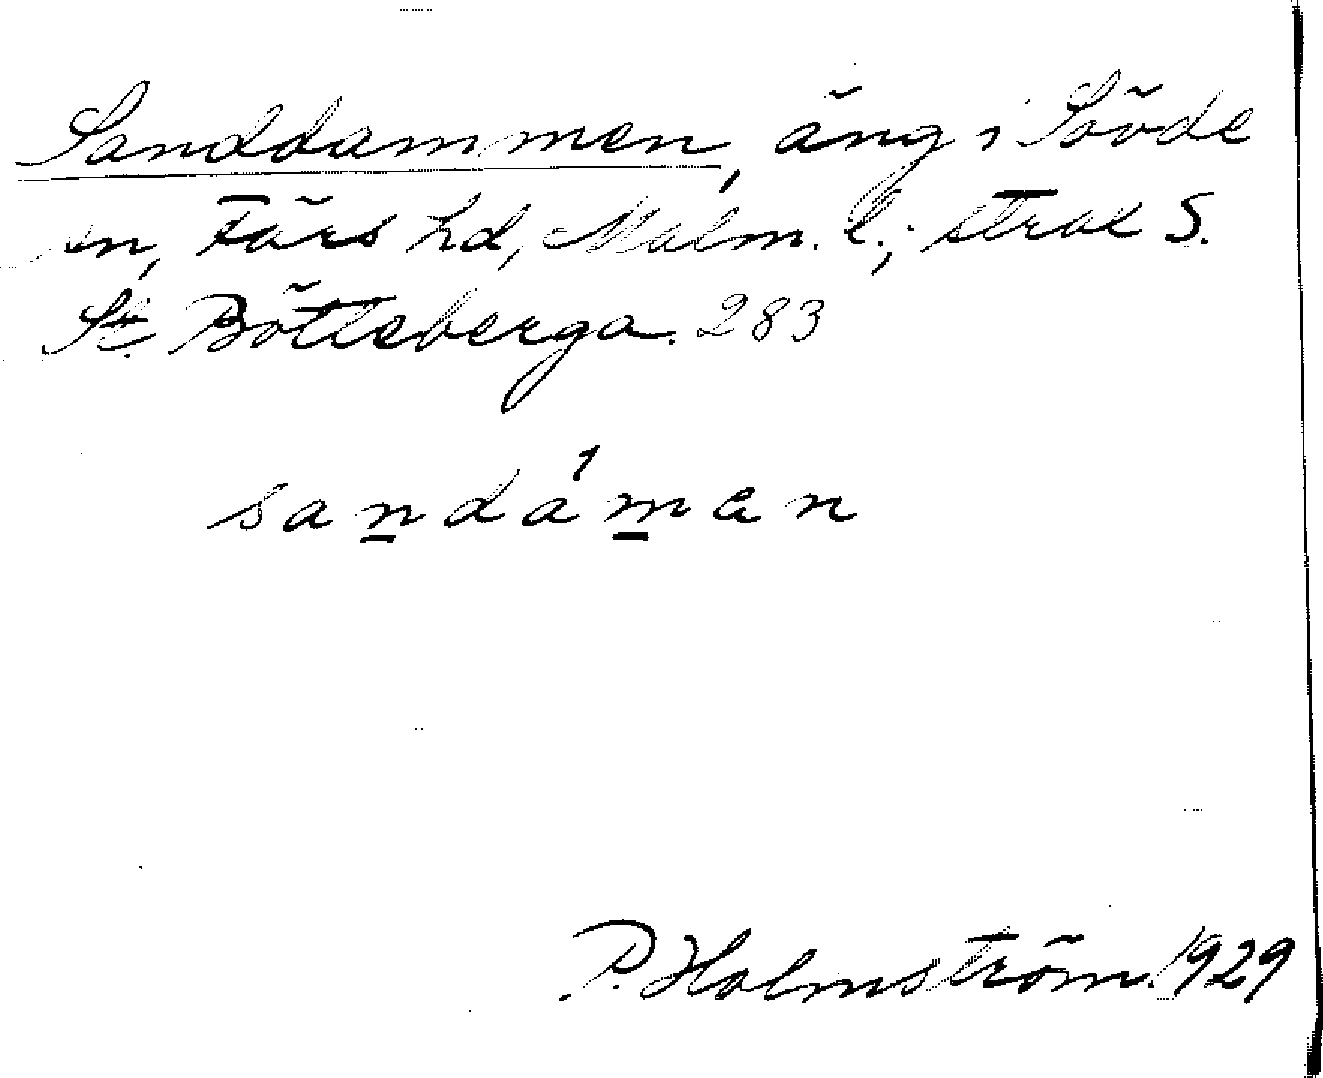 Sanddammen, äng i Sövde
sn, Färs hd, Malm. l.; strax S.
St. Böttleberga. 283
sandámen
P. Holmström. 1929